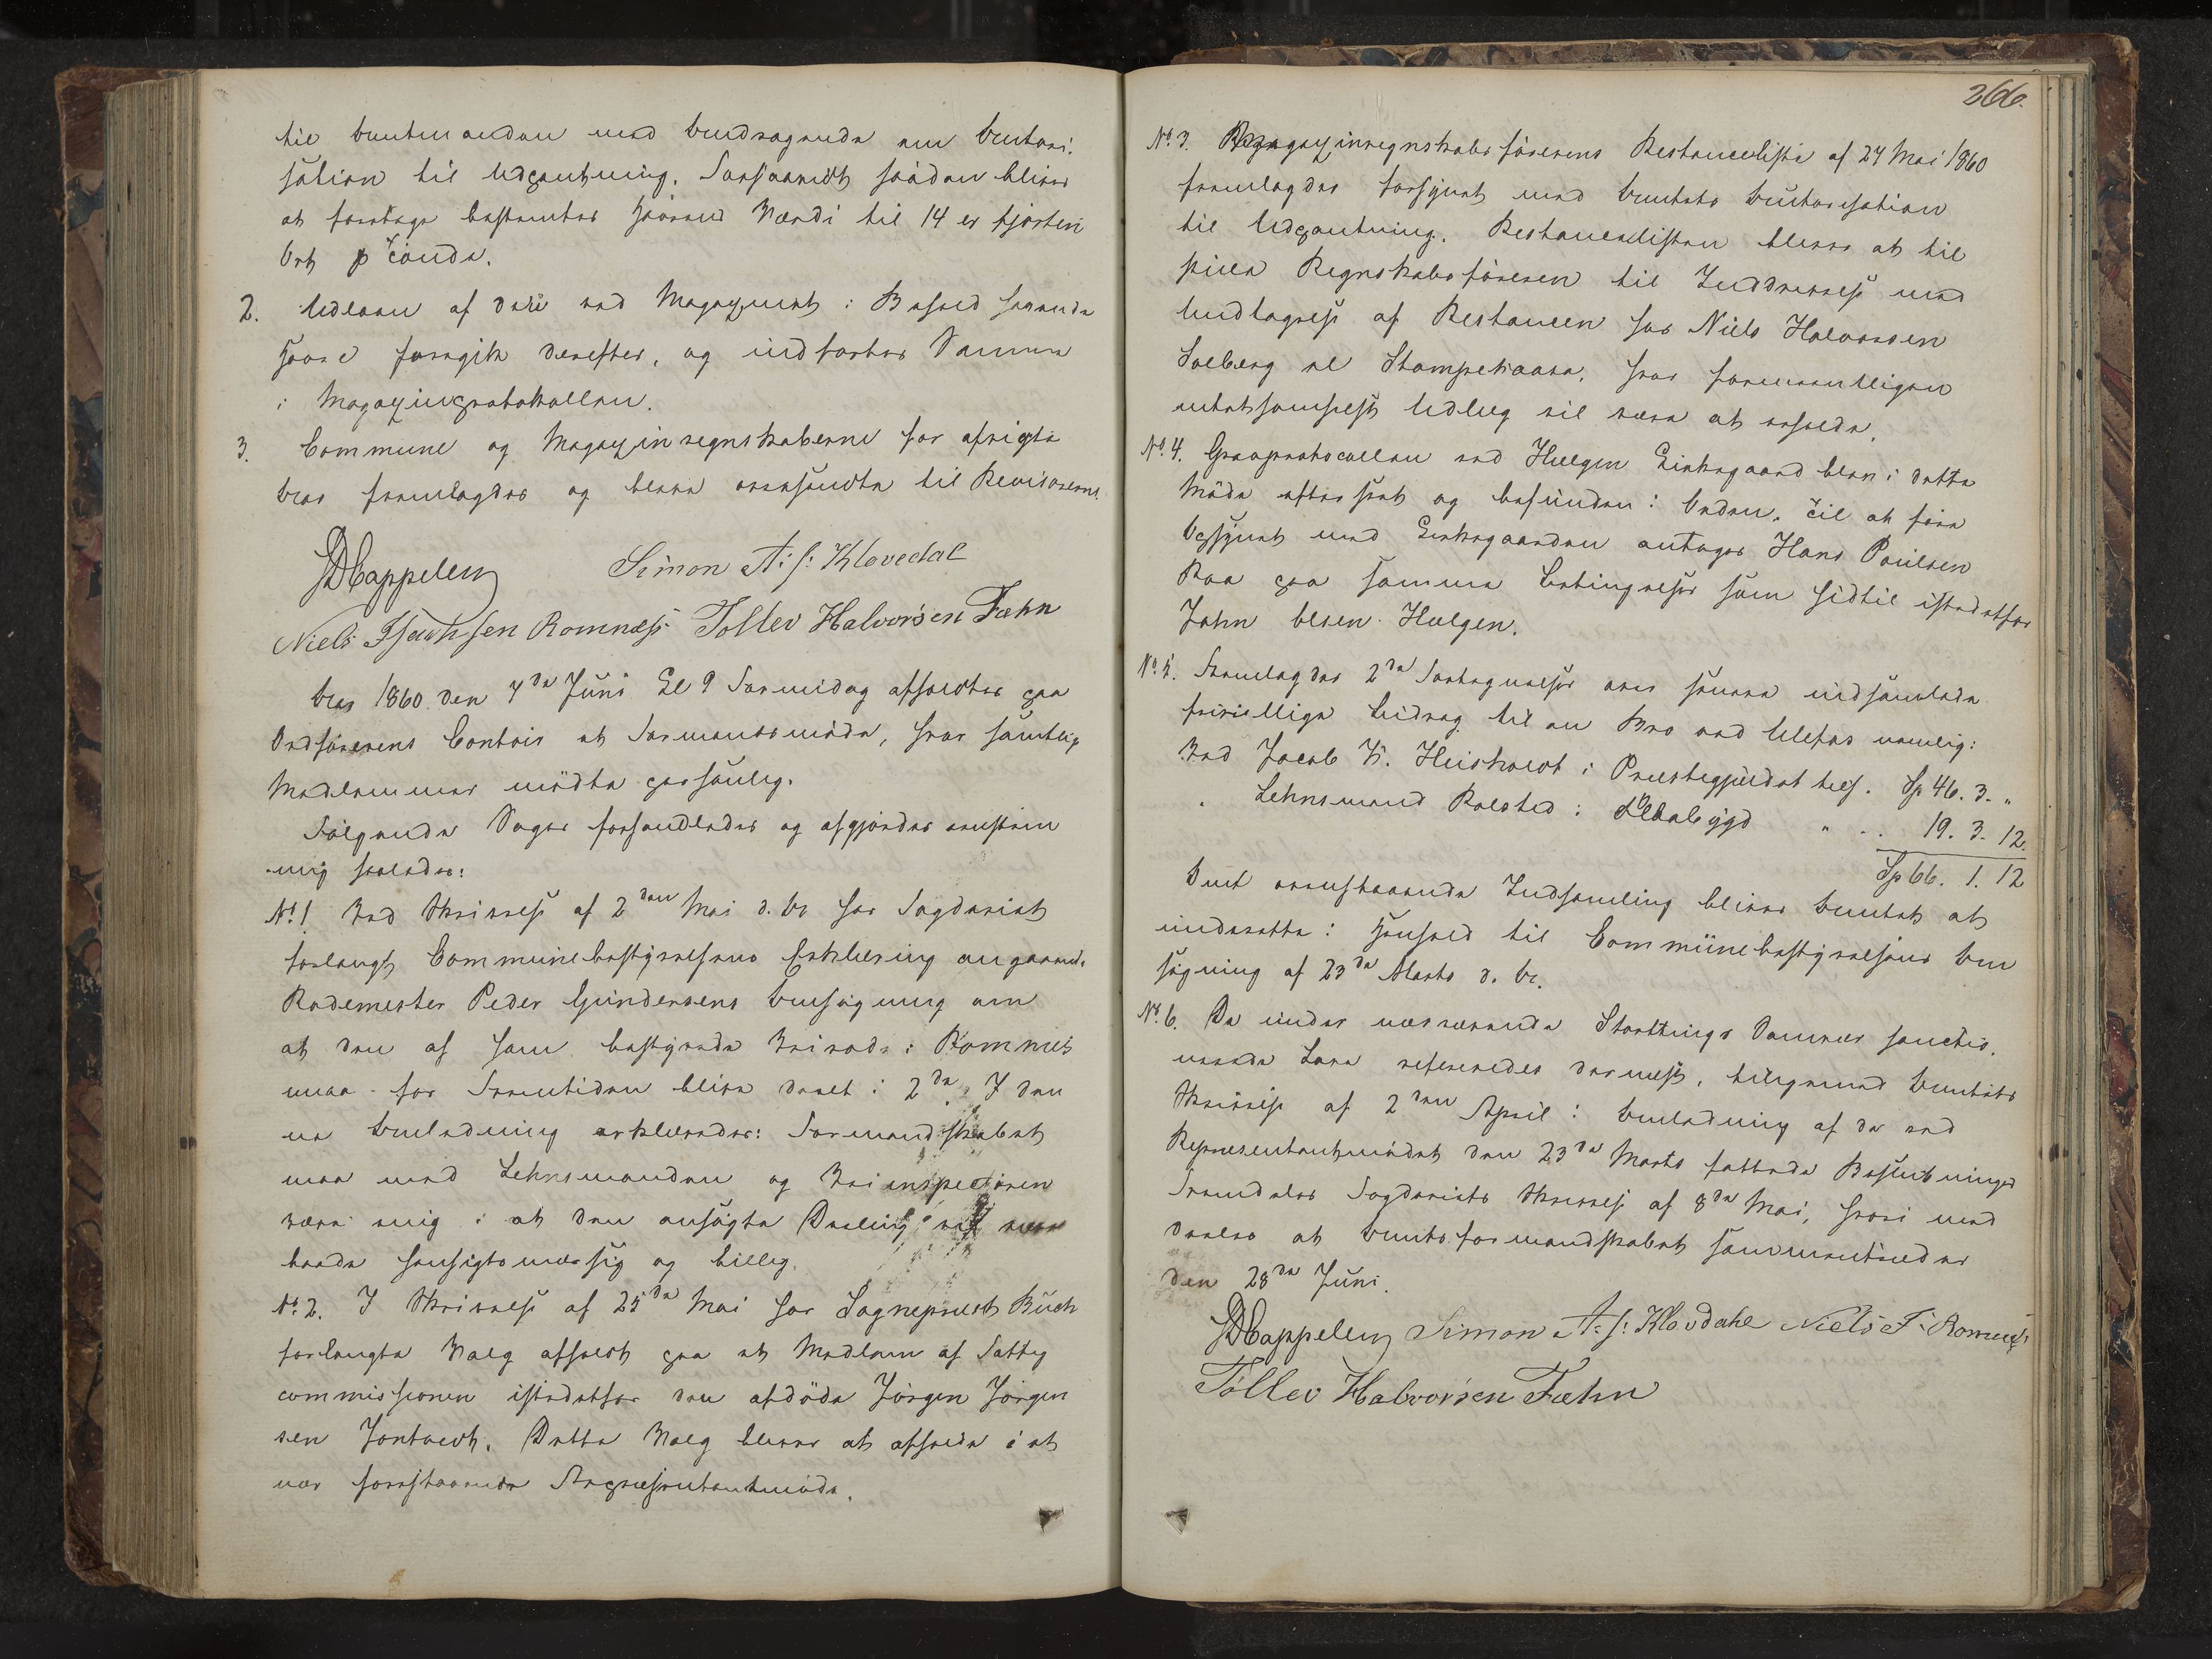 til Amtmanden med Andragende om Autori-
sation til Udpantning. Forsaavidt saadan bliver
at foretage bestemtes Havrens Værdi til 14 er fjorten
Ort p Tønde.
2. Udlaan af det ved Magazinet i Behold havende
Havre foregik derefter, og indførtes Samme
i Magazinprotokollen.
3. Commune og Magazinregnskaberne for afvigte
Aar fremlagdes og bleve oversendte til Revisorerne.
DCappelen Simon A: s: Klovedal
Niels Isachsen Romnæss Tollev Halvorsen Fæhn
Aar 1860 den 7de Juni Kl 9 Formidag afholdtes paa
Ordførerens Contoir et Formandsmöde, hvor samtlige
Medlemmer mödte personlig.
Følgende Sager forhandledes og afgjordes eenstem-
mig saaledes:
No. 1. Ved Skrivelse af 2den Mai d. A. har Fogderiet
forlangt Communebestyrelsens Erklæring angaaende
Rodemester Peder Gundersens Ansøgning om
at den af ham bestyrede Veirode i Romnes
maa for Fremtiden blive deelt i 2de. I den
ne Anledning erklæredes: Formandskabet
maa med Lehnsmanden og Veiinspectøren
være enig i at den ansøgte Deeling vil være
baade hensigtsmæssig og billig.
No. 2. I Skrivelse af 25de Mai har Sognepræst Buch
forlangte Valg afholdt paa et Medlem af Fattig
commissionen istedetfor den afdöde Jørgen Jørgen
sen Jontvedt. Dette Valg bliver at afholde i et
nær forestaaende Repræsentantmöde.
266.
No. 3. Magazinregnskabsførerens Restanceliste af 24 Mai 1860
fremlagdes forsynet med Amtets Autorisation
til Udpantning. Restancelisten bliver at til
stille Regnskabsføreren til Inddrivelse med
Undtagelse af Restancen hos Niels Halvorsen
Solberg el Stampekaasa, hvor formeentligen
intetsomhelst Udlæg vil være at erholde.
No. 4. Graveprotocollen ved Hælgen Kirkegaard blev i dette
Möde efterseet og befunden i Orden. Til at føre
Opsynet med Kirkegaarden antages Hans Poulsen
Raa paa samme Betingelser som hidtil istedetfor
John Olsen Hælgen.
No. 5. Fremlagdes 2de Fortegnelser over havende indsamlede
frivillige Bidrag til en Bro ved Ulefos nemlig:
Ved Jacob K. Heisholdt i Præstegjeldet tils. Sp 46. 3. "
" Lehnsmand Rolsted i Flåbygd " . . 19. 3. 12.
Sp 66. 1. 12
Om ovenstaaende Indsamling bliver Amtet at
underrette i Henhold til Communebestyrelsens An
søgning af 23de Marts d. A.
No. 6. De under nærværende Storthings Samvær sanctio-
nerede Love refereredes dernæst, tilligemed Amtets
Skrivelse af 2den April i Anledning af de ved
Repræsentantmödet den 23de Marts fattede Beslutninger
Fremdeles Fogderiets Skrivelse af 8de Mai, hvori med
deeles at Amtsformandskabet sammentræder
den 28de Juni.
DCappelen Simon A: s: Klovdahl Niels I: Romnæss
Tollev Halvorsen Fæhn